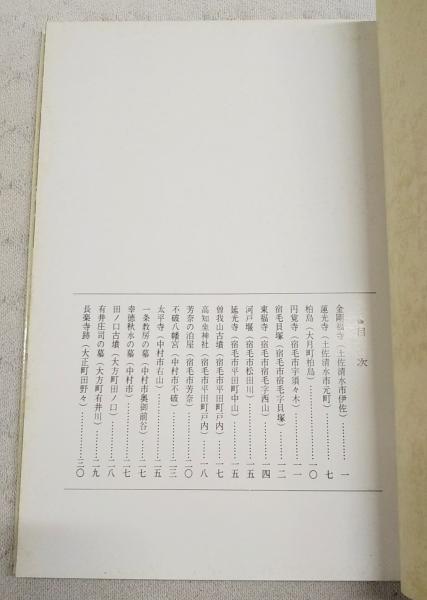 目次
金剛福寺（土佐清水市伊佐）…………一
蓮光寺（土佐清水市元町）…………七
柏島（大月町柏島）…………一〇
円覚寺（宿毛市宇須々木）…………一一
宿毛貝塚（宿毛市宿毛字貝塚）…………一二
東福寺（宿毛市宿毛字西山）…………一四
河戸堰（宿毛市松田川）…………一五
延光寺（宿毛市平田町中山）…………一五
曽我山古墳（宿毛市平田町戸内）…………一七
高知坐神社（宿毛市平田町戸内）…………一八
芳奈の泊屋（宿毛市芳奈）…………二〇
不破八幡宮（中村市不破）…………二三
太平寺（中村市右山）…………二五
一条教房の墓（中村市奥御前谷）…………二七
幸徳秋水の墓（中村市）…………二七
田ノ口古墳（大方町田ノ口）…………二八
有井庄司の墓（大方町有井川）…………二九
長楽寺跡（大正町田野々）…………三〇